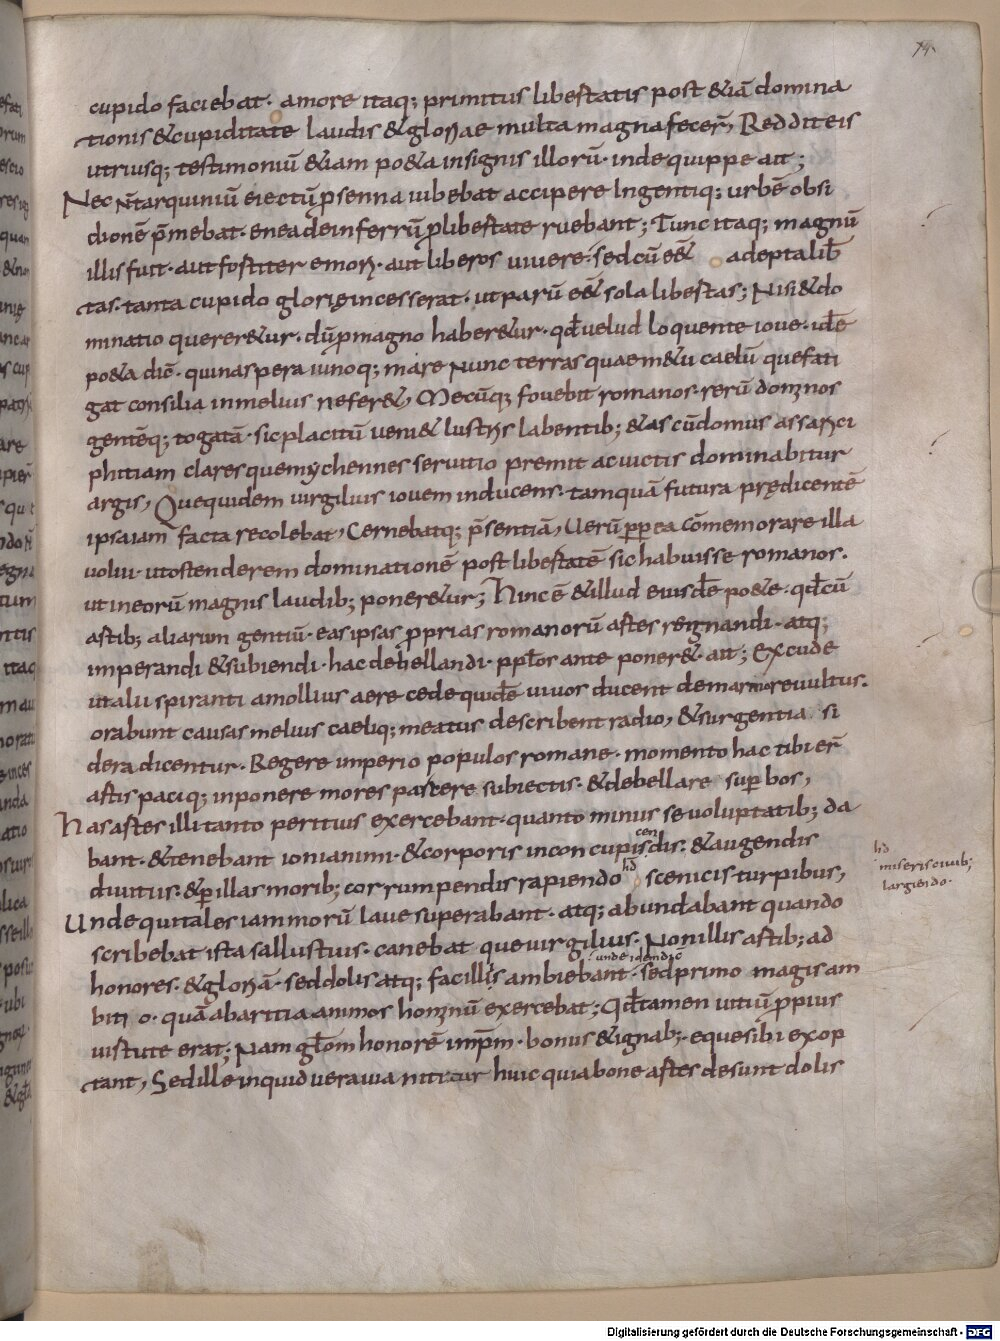 74.
cupido faciebat· amore itaq; primitus libertatis post &iā domina
tionis &cupiditate laudis &gloriae multa magna fecer̄, Reddit eis
utriusq; testimoniū &iam po&a insignis illorū· inde quippe ait;
Nec n̄ tarquiniū eiectū porsenna iubebat accipere Ingentiq; urbē obsi
dionē p̄mebat· eneade in ferrū p libertate ruebant; Tunc itaq; magnū
illis fuit· aut fortiter emori· aut liberos uiuere· sed cū eē& adepta lib̄
tas· tanta cupido glorię incesserat· ut parū eē& sola libertas; Nisi &do
minatio querer&ur· dū p magno haber&ur· qd̄ uelud loquente ioue· idē
po&a diē· quin aspera iunoq; mare Nunc terras quae m&u caelū que fati
gat consilia in melius refer&, Mecūq; fouebit romanos rerū dominos
gentēq; togatā· sic placitū ueni& lustris labentib; &as cū domus assarici
phitiam claresque mychennes seruitio premit ac uictis dominabitur
argis, Que quidem uirgilius iouem inducens· tamquā futura prędicentē
ipsa iam facta recolebat, Cernebatq; p̄sentiā, Uerū pp ea cōmemorare illa
uolui· ut ostenderem dominationē post libertatē sic habuisse romanos·
ut in eorū magnis laudib; poner&ur; Hinc ē &illud eiusdē po&e· qd̄ cū
artib; aliarum gentiū· eas ipsas proprias romanorū artes regnandi· atq;
imperandi &subiendi· hac debellandi· pplos ante poner& ait; Excude
ut alii spiranti a mollius aere cede quidē uiuos ducent de marmore uultus·
orabunt causas melius caeliq; meatus describent radio, &surgentia· si
dera dicentur· Regere imperio populos romane· momento hac tibi er̄
artis paciq; inponere mores parcere subiectis· &debellare superbos,
Has artes illi tanto peritius exercebant· quanto minus se uoluptatib; da
bant· &enebant ionianimi· &corporis in concupis dis· &augendis
cen
diuitus· &p illas morib; corrumpendis rapiendo hd̄ scenicis turpibus,
hd̄
miseris ciuib;
largiendo·
Unde qui tales iam morū laue superabant· atq; abundabant quando
scribebat ista sallustius· canebat que uirgilius· Non illis artib; ad
honores· &gloriā· sed dolis atq; facillis ambiebant· sed primo magis am
bitio· quā abaritia animos hominū exercebat; Qd̄ tamen uitiū ppius
uirtute erat; Nam glam honorē imp̄m· bonus &ignab;· eque sibi exop
tant, Sed ille inquid uera uia nititur huic quia bone artes desunt dolis
Digitalisierung gefördert durch die Deutsche Forschungsgemeinschaft - DFG